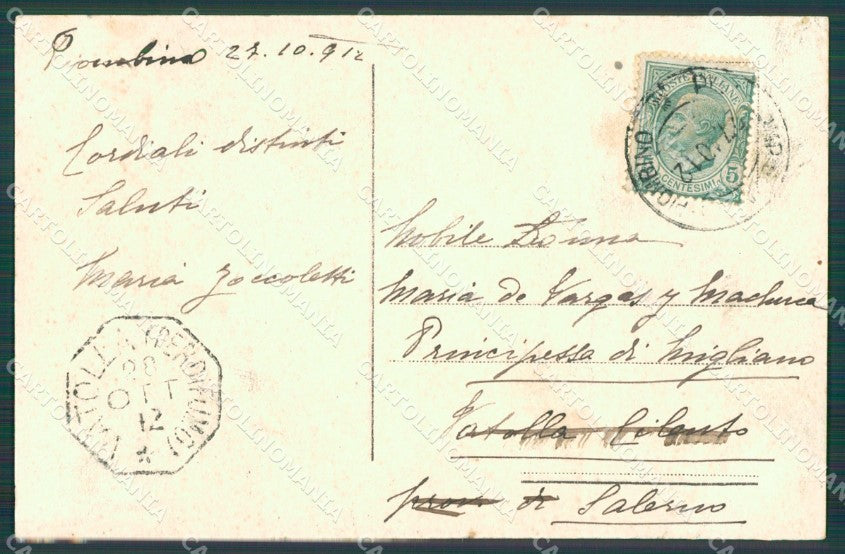 Piombino 27.10.912
Cordiali distinti
Saluti
Maria Zoccoletti
Nobile Donna
Maria de Vargas y Machuca
Principessa di Migliano
Vatolla Cilento
prov. di Salerno
POSTE ITALIANE
CENTESIMI 5
PIOMBINO
VATOLLA (PERDIFUMO)
28
OTT
12
CARTOLINOMANIA